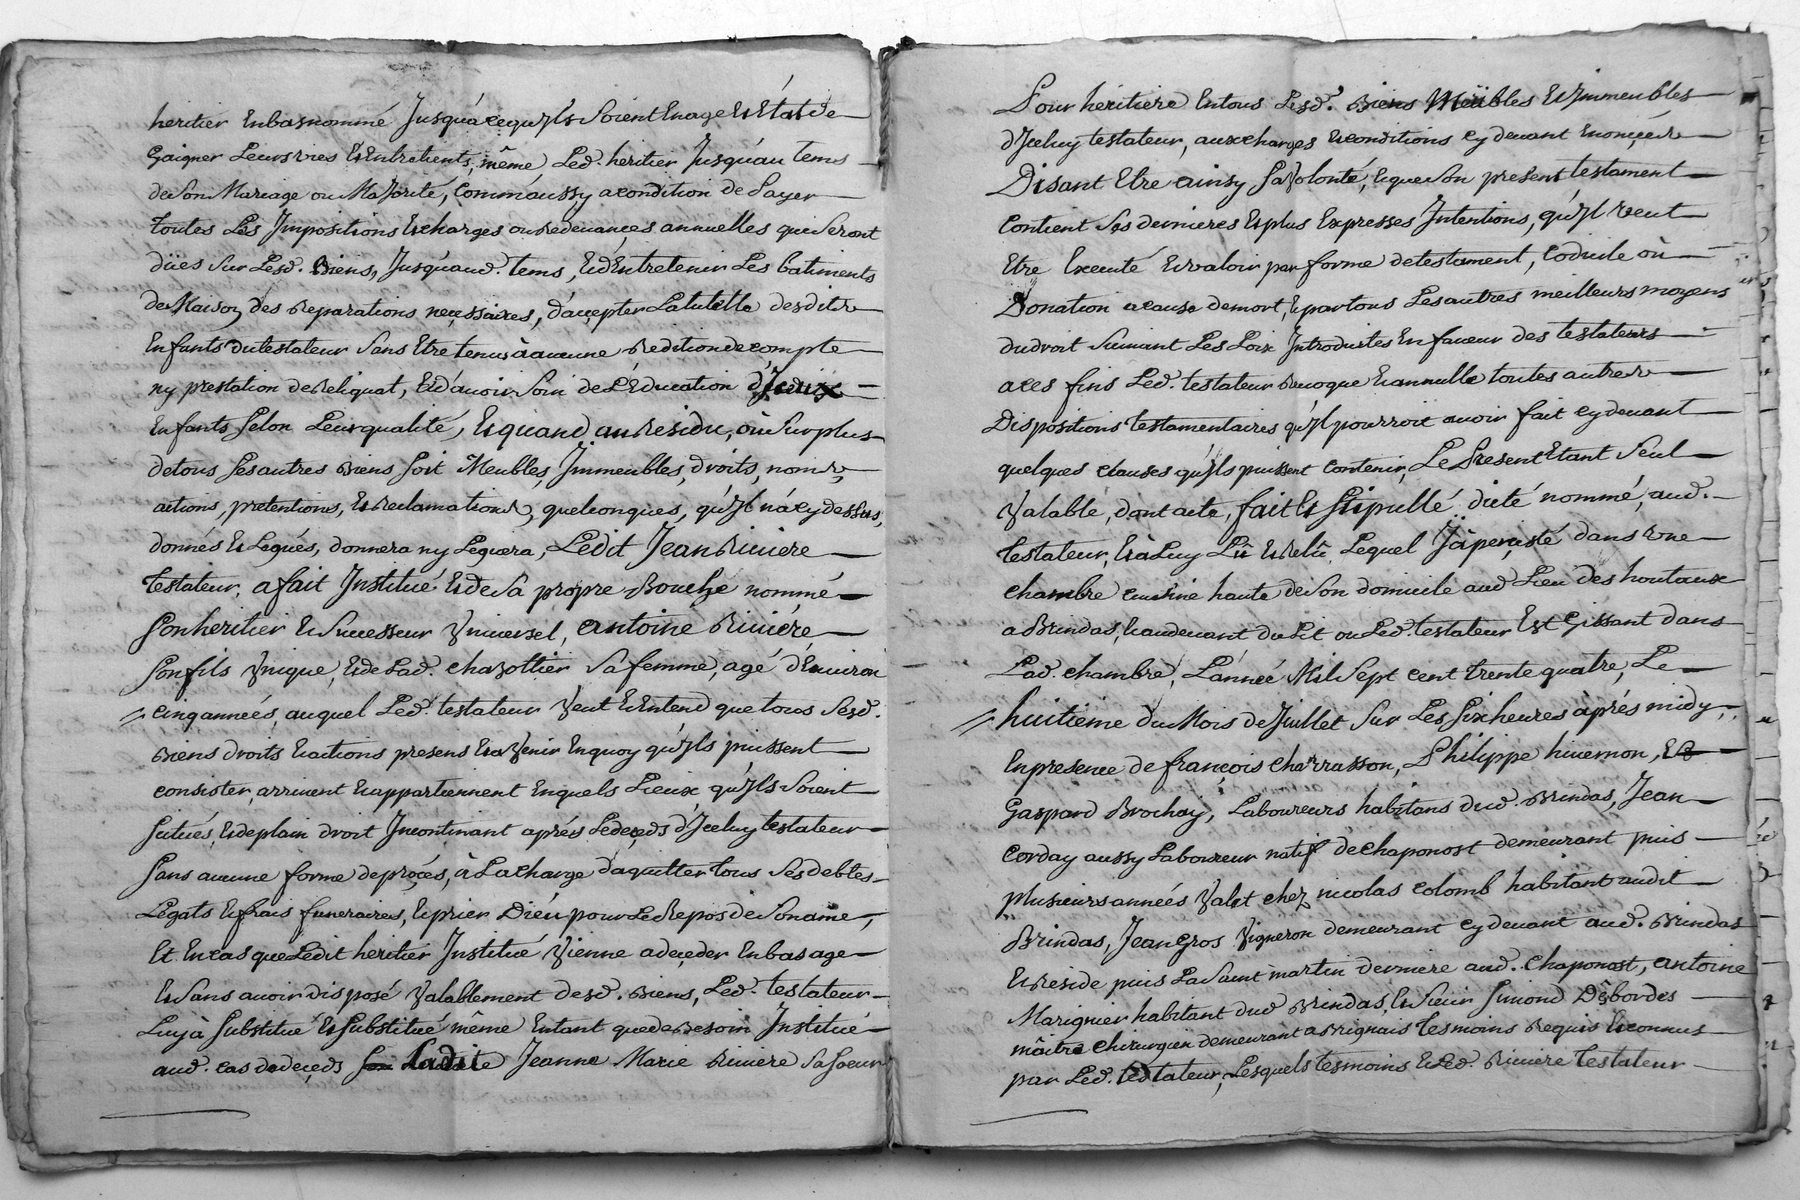 heritier Enbas nommé Jusqu'à ce qu'Jls Soient Enage Et Etat de
Gaigner Leurs vies Et Entretients, même Led. heritier Jusqu'au tems
de Son Mariage ou Majorité, Comm'aussy a condition de Payer
toutes Les Jmpositions Et charges ou Redevances annuelles qui Seront
düës Sur Lesd. Biens, Jusqu'aud. tems, Et d'Entretenir Les batiments
de Maison des Reparations necessaires, d'accepter La tutelle desdits
Enfants du testateur Sans Etre tenus à aucune Reditiondecompte
ny prestation de Reliquat, Et d'avoir Soin de L'Education d'Jceux
Enfants Selon Leur qualité, Et quand au Residu, où Surplus
de tous Ses autres Biens Soit Meubles, Jmmeubles, droits, noms,
actions, pretentions, Et Reclamations, quelconques, qu'Jl n'á cy dessus,
donnés Et Legués, donnera ny Leguera, Ledit Jean Riviere
testateur, a fait Jnstitué Et de Sa propre Bouche nommé
Son heritier Et Successeur Vniversel, antoine Riviére
Son fils Vnique, Et de Lad. chazottier Sa femme, agé d'Environ
cinq années, auquel Led. testateur Veut Et Entend que tous Sesd.
Biens droits Et actions presens Et aVenir Enquoy qu'Jls puissent
consister, arrivent Et appartiennent Enquels Lieux qu'Jls Soient
Situés, Et deplain droit Jncontinant aprés Le deceds d'Jceluy testateur
Sans aucune forme de procés, à La charge d'aquitter tous Ses debtes
Legats Et frais funeraires, Et prier Dieu pour Le Repos de Son ame,
Et En cas que Ledit heritier Jnstitué Vienne a deceder En bas age
Et Sans avoir disposé Valablement desd. Biens, Led. testateur
Luy à Substitué Et Substitué même Entant que de Besoin Jnstitué
aud. cas de deceds Ladite Jeanne Marie Riviere Sa Soeur
Pour heritiere Entous Lesd. Biens Meübles Et Jmmeubles
d'Jceluy testateur, aux charges Et conditions cy devant Enoncées
Disant Etre ainsy Sa Volonté, Et que Son present testament
Contient Ses dernieres Et plus Expresses Jntentions, qu'Jl veut
Etre Executé Et valoir par forme de testament, Codicile où
Donation a cause de mort, Et par tous Les autres meilleurs moyens
du droit Suivant Les Loix Jntroduites En faveur des testateurs
a ces fins Led. testateur Revoque Et annulle toutes autres
Dispositions testamentaires qu'Jl pourroit avoir fait cy devant
quelques clauses qu'Jls puissent contenir, Le Present Etant Seul
Valable, dont acte, fait Et Stipullé dicté nommé, aud.
testateur, Et à Luy Lü Et Relü Lequel J à persisté dans vne
chambre cuisine haute de Son domicile aud Lieu des houtaux
a Brindas, Et audevant du Lit ou Led. testateur Est Gissant dans
Lad. chambre, L'année Mil Sept cent trente quatre, Le
huitieme du Mois de Juillet Sur Les Six heures aprés midy,
En presence de francois Charrasson, Philippe hivernon, Et
Gaspard Brochay, Laboureurs habitans dud. Brindas, Jean
corday aussy Laboureur natif de chaponost demeurant puis
plusieurs années Valet chez nicolas colomb habitant audit
Brindas, Jean Gros Vigneron demeurant cy devant aud. Brindas
Et Reside puis La Saint martin derniere aud. Chaponost, antoine
Marignier habitant dud Brindas, Et Sieur Simond Desbordes
mâitre Chirurgien demeurant a Brignais tesmoins Requis Et connus
par Led. testateur, Lesquels tesmoins Et Led. Riviere testateur